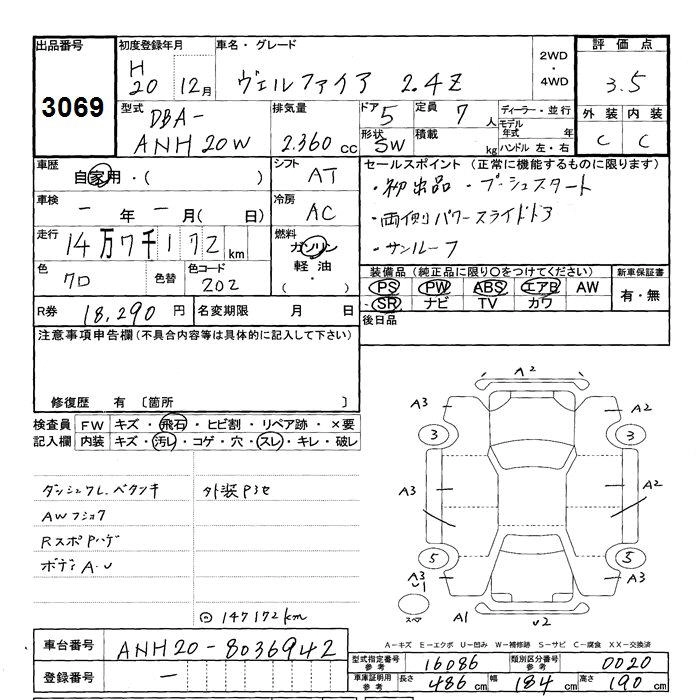 出品番号 初度登録年月 車名・グレード 2WD・4WD 評価点
3069 H20 12月 ヴェルファイア 2.4Z 3.5
型式 排気量 ドア 5 定員 7人 ディーラー・並行 外装 内装
DBA-ANH20W 2.360cc 形状 SW 積載 kg モデル年式 年 ハンドル 左・右 C C
車歴 自家用・( ) シフト AT セールスポイント (正常に機能するものに限ります)
・初出品・プッシュスタート
車検 ー年ー月( 日) 冷房 AC ・両側パワースライドドア
走行 14万7千172km 燃料 ガソリン 軽油 ( ・ ) ・サンルーフ
色 クロ 色替 色コード 202 装備品 (純正品に限り○をつけてください) 新車保証書
PS PW ABS エアB AW 有・無
R券 18,290円 名変期限 月 日 SR ナビ TV カワ
注意事項申告欄 (不具合内容等は具体的に記入して下さい) 後日品
修復歴 有 〔箇所 〕
検査員 FW キズ・飛石・ヒビ割・リペア跡・×要
記入欄 内装 キズ・汚レ・コゲ・穴・スレ・キレ・破レ
外装Pヨセ
Rスポ Pハゲ
ボディA.U
147172km
A2
A3 A2
3 3
A3 A2
5 5
A3 U1 A3
スペア A1 U2
A-キズ E-エクボ U-凹み W-補修跡 S-サビ C-腐食 XX-交換済
車台番号 ANH20-8036942
型式指定番号 参考 16086 類別区分番号 参考 0020
登録番号 ー 車庫証明用 参考 長さ 486cm 幅 184cm 高さ 190cm